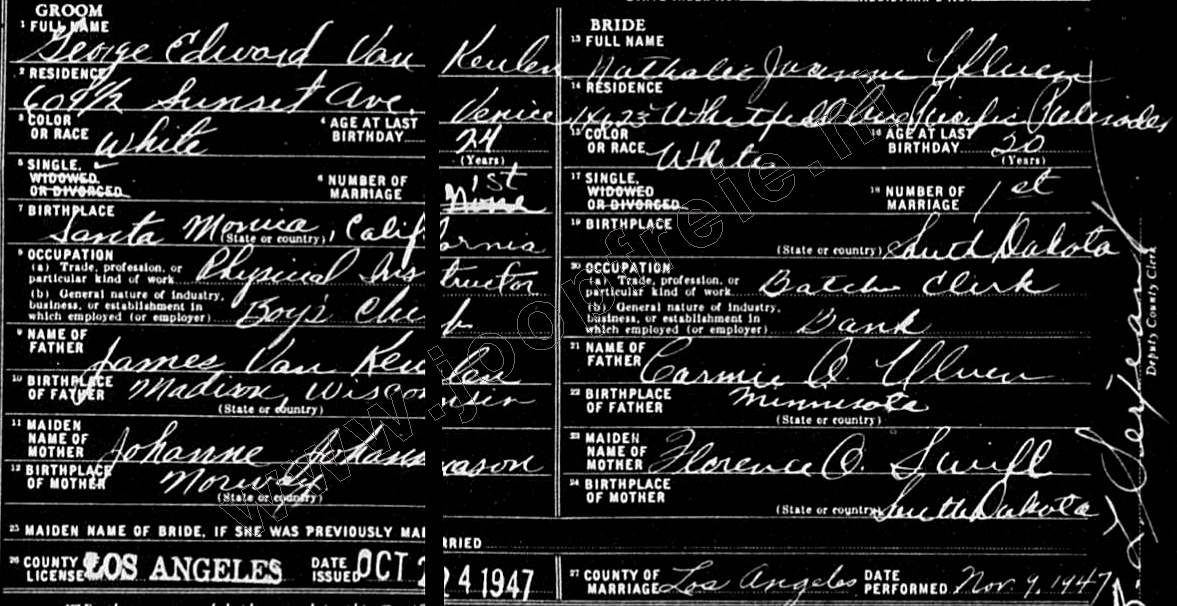 GROOM
1 FULL NAME George Edward Van Keulen
2 RESIDENCE 609½ Sunset Ave. Venice
3 COLOR OR RACE White
4 AGE AT LAST BIRTHDAY 24 (Years)
5 SINGLE, WIDOWED OR DIVORCED
6 NUMBER OF MARRIAGE 1st
7 BIRTHPLACE Santa Monica, California
(State or country)
8 OCCUPATION
(a) Trade, profession, or particular kind of work Physical Instructor
(b) General nature of industry, business, or establishment in which employed (or employer) Boy's Club
9 NAME OF FATHER James Van Keulen
10 BIRTHPLACE OF FATHER Madison, Wisconsin
(State or country)
11 MAIDEN NAME OF MOTHER Johanne
12 BIRTHPLACE OF MOTHER Norway
(State or country)
BRIDE
13 FULL NAME Nathalie
14 RESIDENCE Pacific Palisades
15 COLOR OR RACE White
16 AGE AT LAST BIRTHDAY 20 (Years)
17 SINGLE, WIDOWED OR DIVORCED
18 NUMBER OF MARRIAGE 1st
19 BIRTHPLACE
(State or country) South Dakota
20 OCCUPATION
(a) Trade, profession, or particular kind of work Clerk
(b) General nature of industry, business, or establishment in which employed (or employer) Bank
21 NAME OF FATHER O.
22 BIRTHPLACE OF FATHER Minnesota
(State or country)
23 MAIDEN NAME OF MOTHER Florence O. Swift
24 BIRTHPLACE OF MOTHER
(State or country) South Dakota
25 MAIDEN NAME OF BRIDE, IF SHE WAS PREVIOUSLY MARRIED
26 COUNTY LICENSE LOS ANGELES DATE ISSUED OCT 24 1947
27 COUNTY OF MARRIAGE Los Angeles DATE PERFORMED Nov. 9, 1947
Deputy County Clerk
www.joopfreie.nl